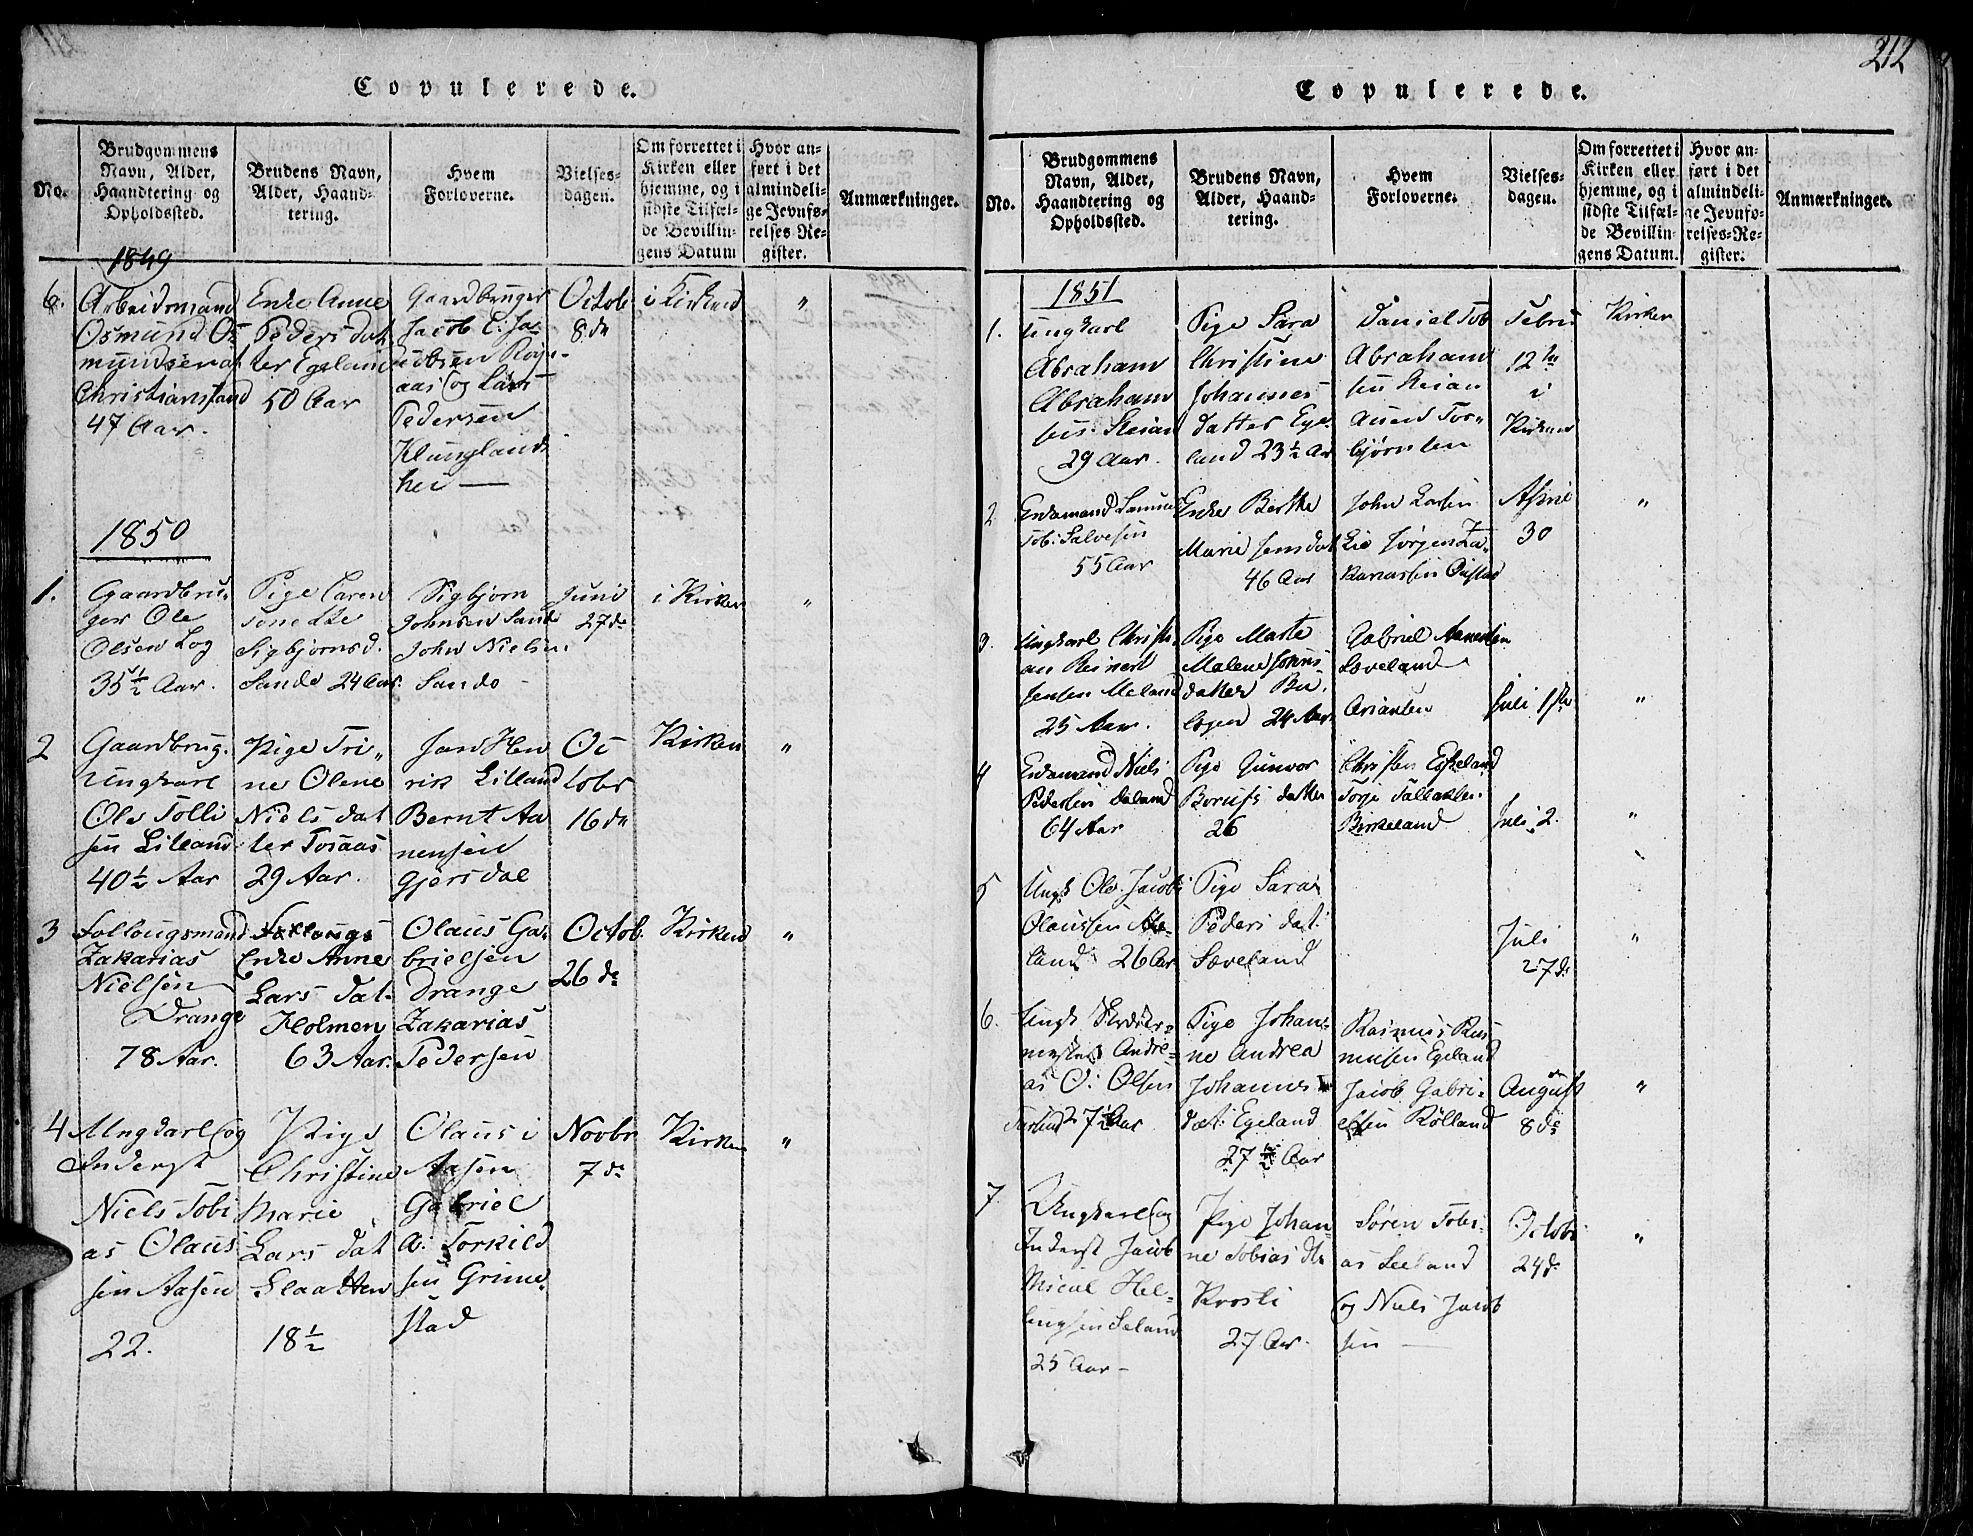 Copulerede.
No.
Brudgommens
Navn, Alder,
Haandtering og
Opholdssted.
Brudens Navn,
Alder, Haand-
tering.
Hvem
Forloverne.
Vielses-
dagen.
Om forrettet i
Kirken eller
hjemme, og i
sidste Tilfæl-
de Bevillin-
gens Datum
Hvor an-
ført i det
almindeli-
ge Jevnfø-
relses Re-
gister.
Anmærkninger.
1849
6.
Arbeidsmand
Osmund Os
mundsen at
Christiansand
47 Aar.
Enke Anne
Peders dat
ter Egeland
50 Aar
Gaardbruger
Jacob C: Ja
cobsen
aas og Lars
Pedersen
Klunglands
hei
Octob
8de
i Kirken
"
1850
1.
Gaardbru-
ger Ole
Olsen Log
35½ Aar.
Pige Caren
Tonette
Sigbjornsd.
Sande 24 Aar.
Sigbjorn
Johnsen Sande
John Nielsen
Sande
Juni
27de
i Kirken
"
2
Gaardbrug.
Ungkarl
Ole Tolli
sen Lilland
40½ Aar
Pige Tri-
ne Olene
Niels dat
ter Tosaas
29 Aar.
Jan Hen
rik Lilland
Bernt Aa
nensen
Gjersdal
Oc
tobr
16de
Kirken
"
3
Follougsmand
Zakarias
Nielsen
Drange
78 Aar.
Follougs
Enke Anne
Lars dat.
Holmen
63 Aar.
Olaus Ga-
brielsen
Drange
Zakarias
Pedersen
Octob.
26de
Kirken
"
4
Ungkarl og
Inderst
Niels Tobi
as Olaus
sen Aasen
22.
Pige
Christine
Marie
Lars dat
Slaatten
18½
Olaus i
Aasen
Gabriel
A: Torkild
sen Grime
stad
Novbr
7de
Kirken
"
212
Copulerede.
No.
Brudgommens
Navn, Alder,
Haandtering og
Opholdssted.
Brudens Navn,
Alder, Haand-
tering.
Hvem
Forloverne.
Vielses-
dagen.
Om forrettet i
Kirken eller
hjemme, og i
sidste Tilfæl-
de Bevillin-
gens Datum.
Hvor an-
ført i det
almindeli-
ge Jevnfø-
relses-Re-
gister.
Anmærkninger.
1851
1.
Ungkarl
Abraham
Abraham
sen
29 Aar.
Pige Sara
Christine
Johannes
datter Ege
land 23½ Ar
Daniel Tob
Abraham
sen
Tor-
bjørnsen
Febru
12te
i
Kirken
Kirken
2
Enkemand Samuel
Tob: Salvesen
55 Aar
Enke Berthe
Marie Jens dat
46 Aar
John Larsen
Lie Jørgen Za-
kariassen
April
30
"
3.
Ungkarl Christi
an Reinert
Jensen Meland
25 Aar.
Pige Marte
Malene
datter
24 Aar
Gabriel Aanensen
Sæveland
Juli 1ste
"
4
Enkemand Niels
Pedersen
64 Aar
Pige Gunvor
datter
26
Christen Eskeland
Torje
Birkeland
Juli 2.
"
5
Ungk Ole Jacob
Olaussen
land 26 Aar
Pige Sara
Peders dat:
Sæveland
Juli
27de
"
6.
Ungk
Andre-
as O: Olsen
27½ Aar
Pige Johan-
ne Andrea
Johannes
dat: Egeland
27½ Aar
Rasmus Ras
mussen Egeland
Jacob Gabri-
elsen Rølland
August
8de
"
7.
Ungkarl og
Inderst Jacob
Micael Hel-
25 Aar
Pige Johan
ne Tobias dtr
27 Aar.
Søren Tobi-
as
og Niels Jacob
sen
Octob
24de
"